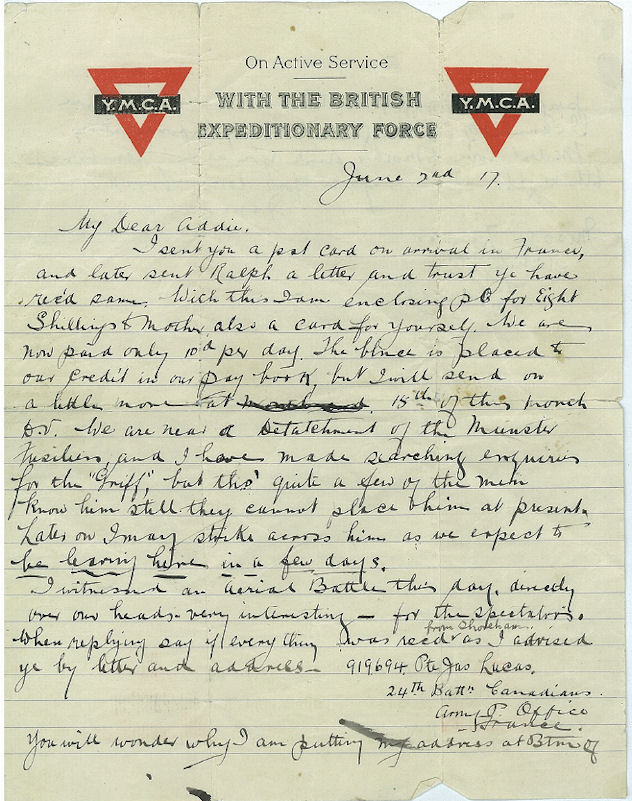 On Active Service
WITH THE BRITISH
EXPEDITIONARY FORCE
Y.M.C.A.
Y.M.C.A.
June 2nd 17.
My Dear Addie.
I sent you a pst card on arrival in France,
and later sent Ralph a letter and trust ye have
rec'd same. With this I am enclosing P O for Eight
Shillings to Mother also a card for yourself. We are
now paid only 10d per day. The blnce is placed to
our credit in our pay book, but I will send on
a little more at 15th of this month
D.V. We are near a Detatchment of the Munster
Fusiliers and I have made searching enquiries
for the "Griff", but tho' quite a few of the men
know him still they cannot place him at present.
Later on I may strike across him as we expect to
be leaving here in a few days.
I witnessed an Aerial Battle this day, directly
over our heads - very interesting - for the spectators.
When replying say if everything was recd from Shoreham as I advised
ye by letter and address - 919694. Pte Jas Lucas.
24th Battn Canadians.
Army P. Office
France.
You will wonder why I am putting my address at Btm of